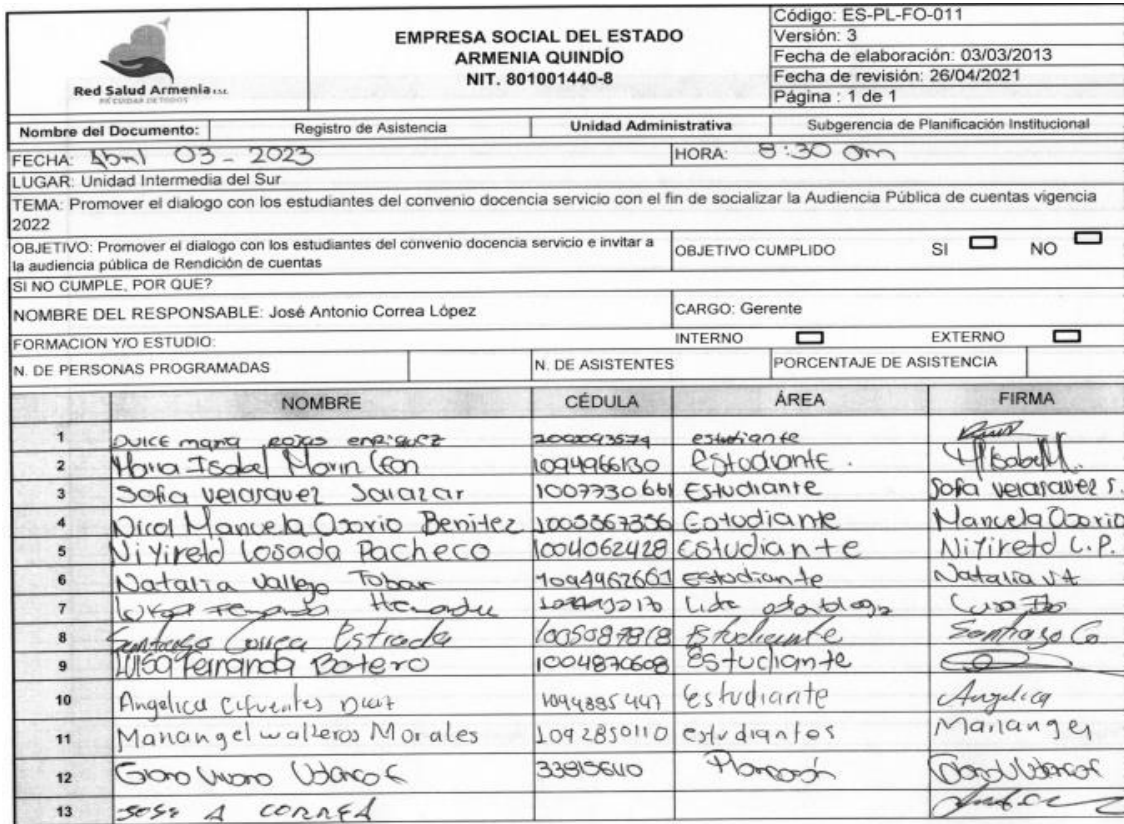 Red Salud Armenia E.S.E.
EMPRESA SOCIAL DEL ESTADO
ARMENIA QUINDÍO
NIT. 801001440-8
Código: ES-PL-FO-011
Versión: 3
Fecha de elaboración: 03/03/2013
Fecha de revisión: 26/04/2021
Página : 1 de 1
Nombre del Documento: Registro de Asistencia Unidad Administrativa Subgerencia de Planificación Institucional
FECHA: Abril 03 - 2023 HORA: 8:30 am
LUGAR: Unidad Intermedia del Sur
TEMA: Promover el dialogo con los estudiantes del convenio docencia servicio con el fin de socializar la Audiencia Pública de cuentas vigencia
2022
OBJETIVO: Promover el dialogo con los estudiantes del convenio docencia servicio e invitar a
la audiencia pública de Rendición de cuentas
OBJETIVO CUMPLIDO SI NO
SI NO CUMPLE, POR QUE?
NOMBRE DEL RESPONSABLE: José Antonio Correa López CARGO: Gerente
FORMACION Y/O ESTUDIO: INTERNO EXTERNO
N. DE PERSONAS PROGRAMADAS N. DE ASISTENTES PORCENTAJE DE ASISTENCIA
NOMBRE CÉDULA ÁREA FIRMA
1 Dulce maria rojas enriquez estudiante
2 Maria Isabel Marin Leon 1094966130 Estudiante. M Isabel M.
3 Sofia velasquez Salazar 1007730661 Estudiante Sofia velasquez S.
4 Nicol Manuela Osorio Benitez 1005367356 Estudiante Manuela Osorio
5 Niyireld Losada Pacheco 1004062428 estudiante Niyireld L.P.
6 Natalia Vallejo Tobar 1094962661 estudiante Natalia V.T
7 Fernanda
8 Santiago Correa Estrada 1005087818 Estudiante Santiago Co
9 Luisa Fernanda Botero 1004870608 Estudiante
10 Angelica Cifuentes Diaz 1094885447 estudiante Angelica
11 Mariangel walteros Morales 1092850110 estudiantes Mariangel
12 33815610
13 JOSE A CORREA